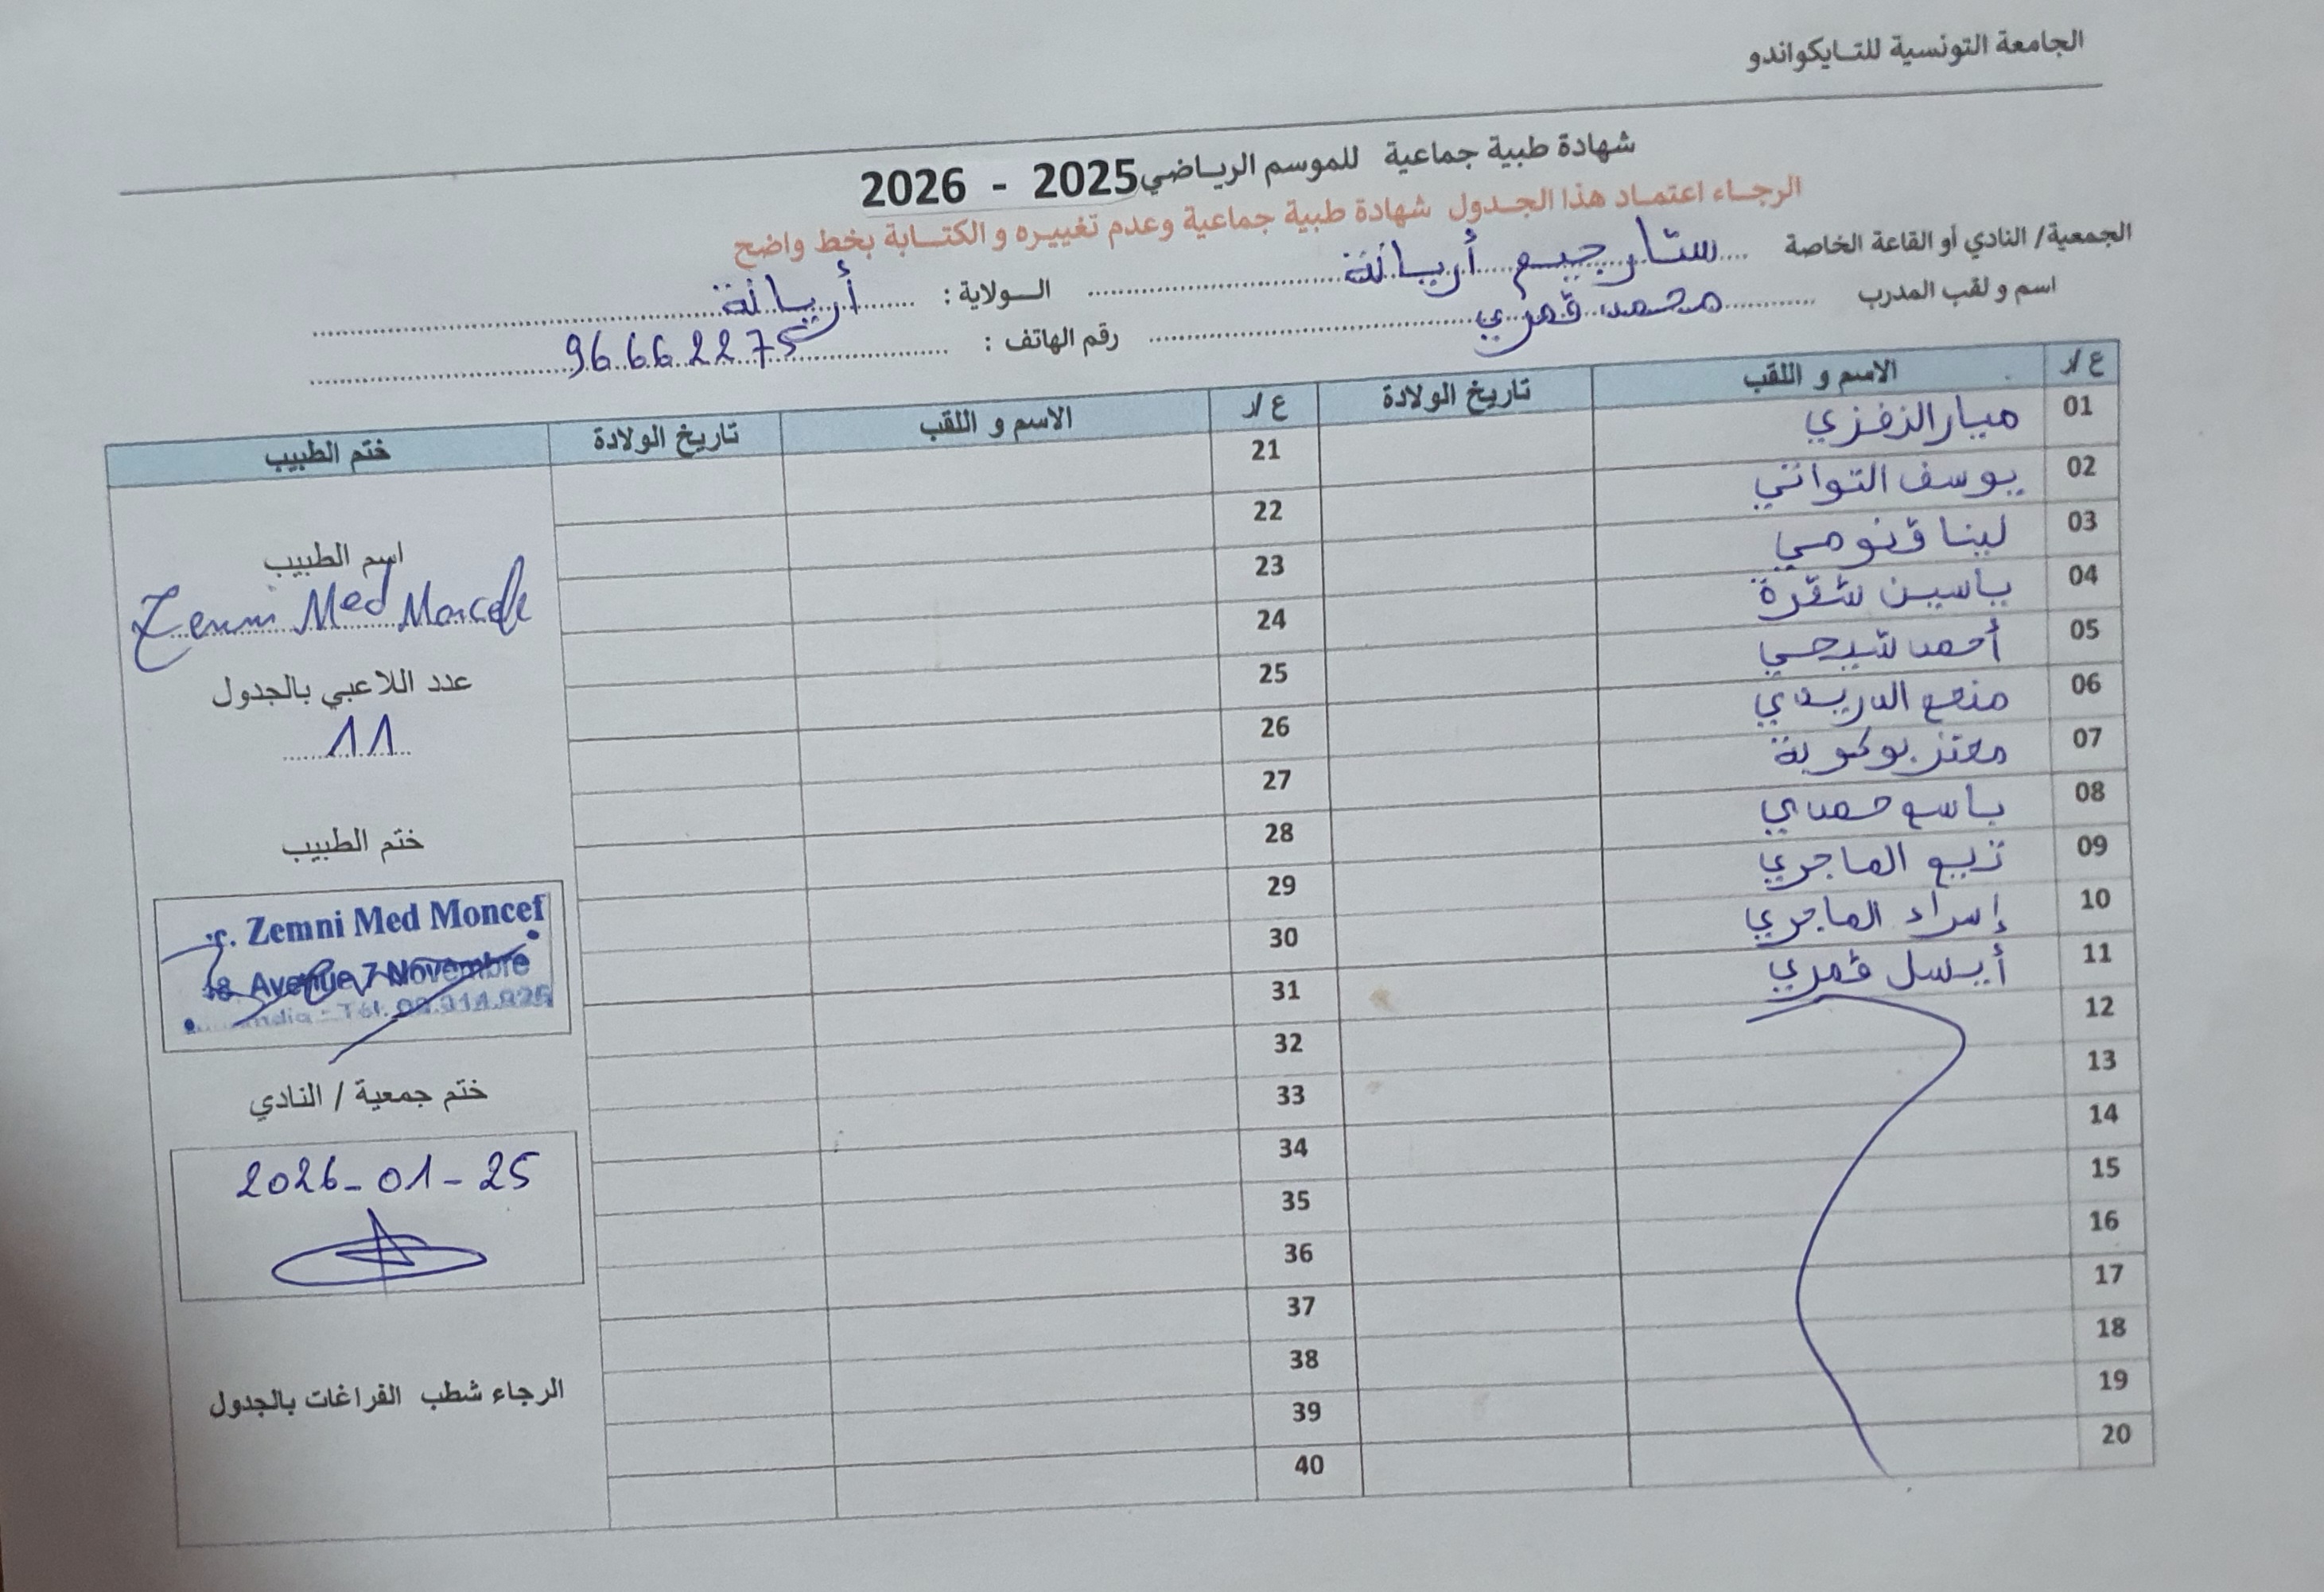 الجامعة التونسية للتايكواندو
شهادة طبية جماعية للموسم الرياضي 2025 - 2026
الرجاء اعتماد هذا الجدول شهادة طبية جماعية وعدم تغييره و الكتابة بخط واضح
الجمعية/ النادي أو القاعة الخاصة ستار جيم أريانة الولاية : أريانة
اسم و لقب المدرب محمد قمري رقم الهاتف : 96662275
ع/ر الاسم و اللقب تاريخ الولادة ع/ر الاسم و اللقب تاريخ الولادة ختم الطبيب
01 ميار الزفزي 21
02 يوسف التواتي 22
03 لينا قنومي 23
04 ياسين شقرة 24
05 أحمد شيحي 25
06 منعم الدريدي 26
07 معتز بوكوبة 27
08 باسم حمدي 28
09 تيم الماجري 29
10 إسراء الماجري 30
11 أيسل قمري 31
12 32
13 33
14 34
15 35
16 36
17 37
18 38
19 39
20 40
اسم الطبيب
Zemni Med Moncef
عدد اللاعبي بالجدول
11
ختم الطبيب
Zemni Med Moncef
Avenue 7 Novembre
Tél.
ختم جمعية / النادي
2026-01-25
الرجاء شطب الفراغات بالجدول